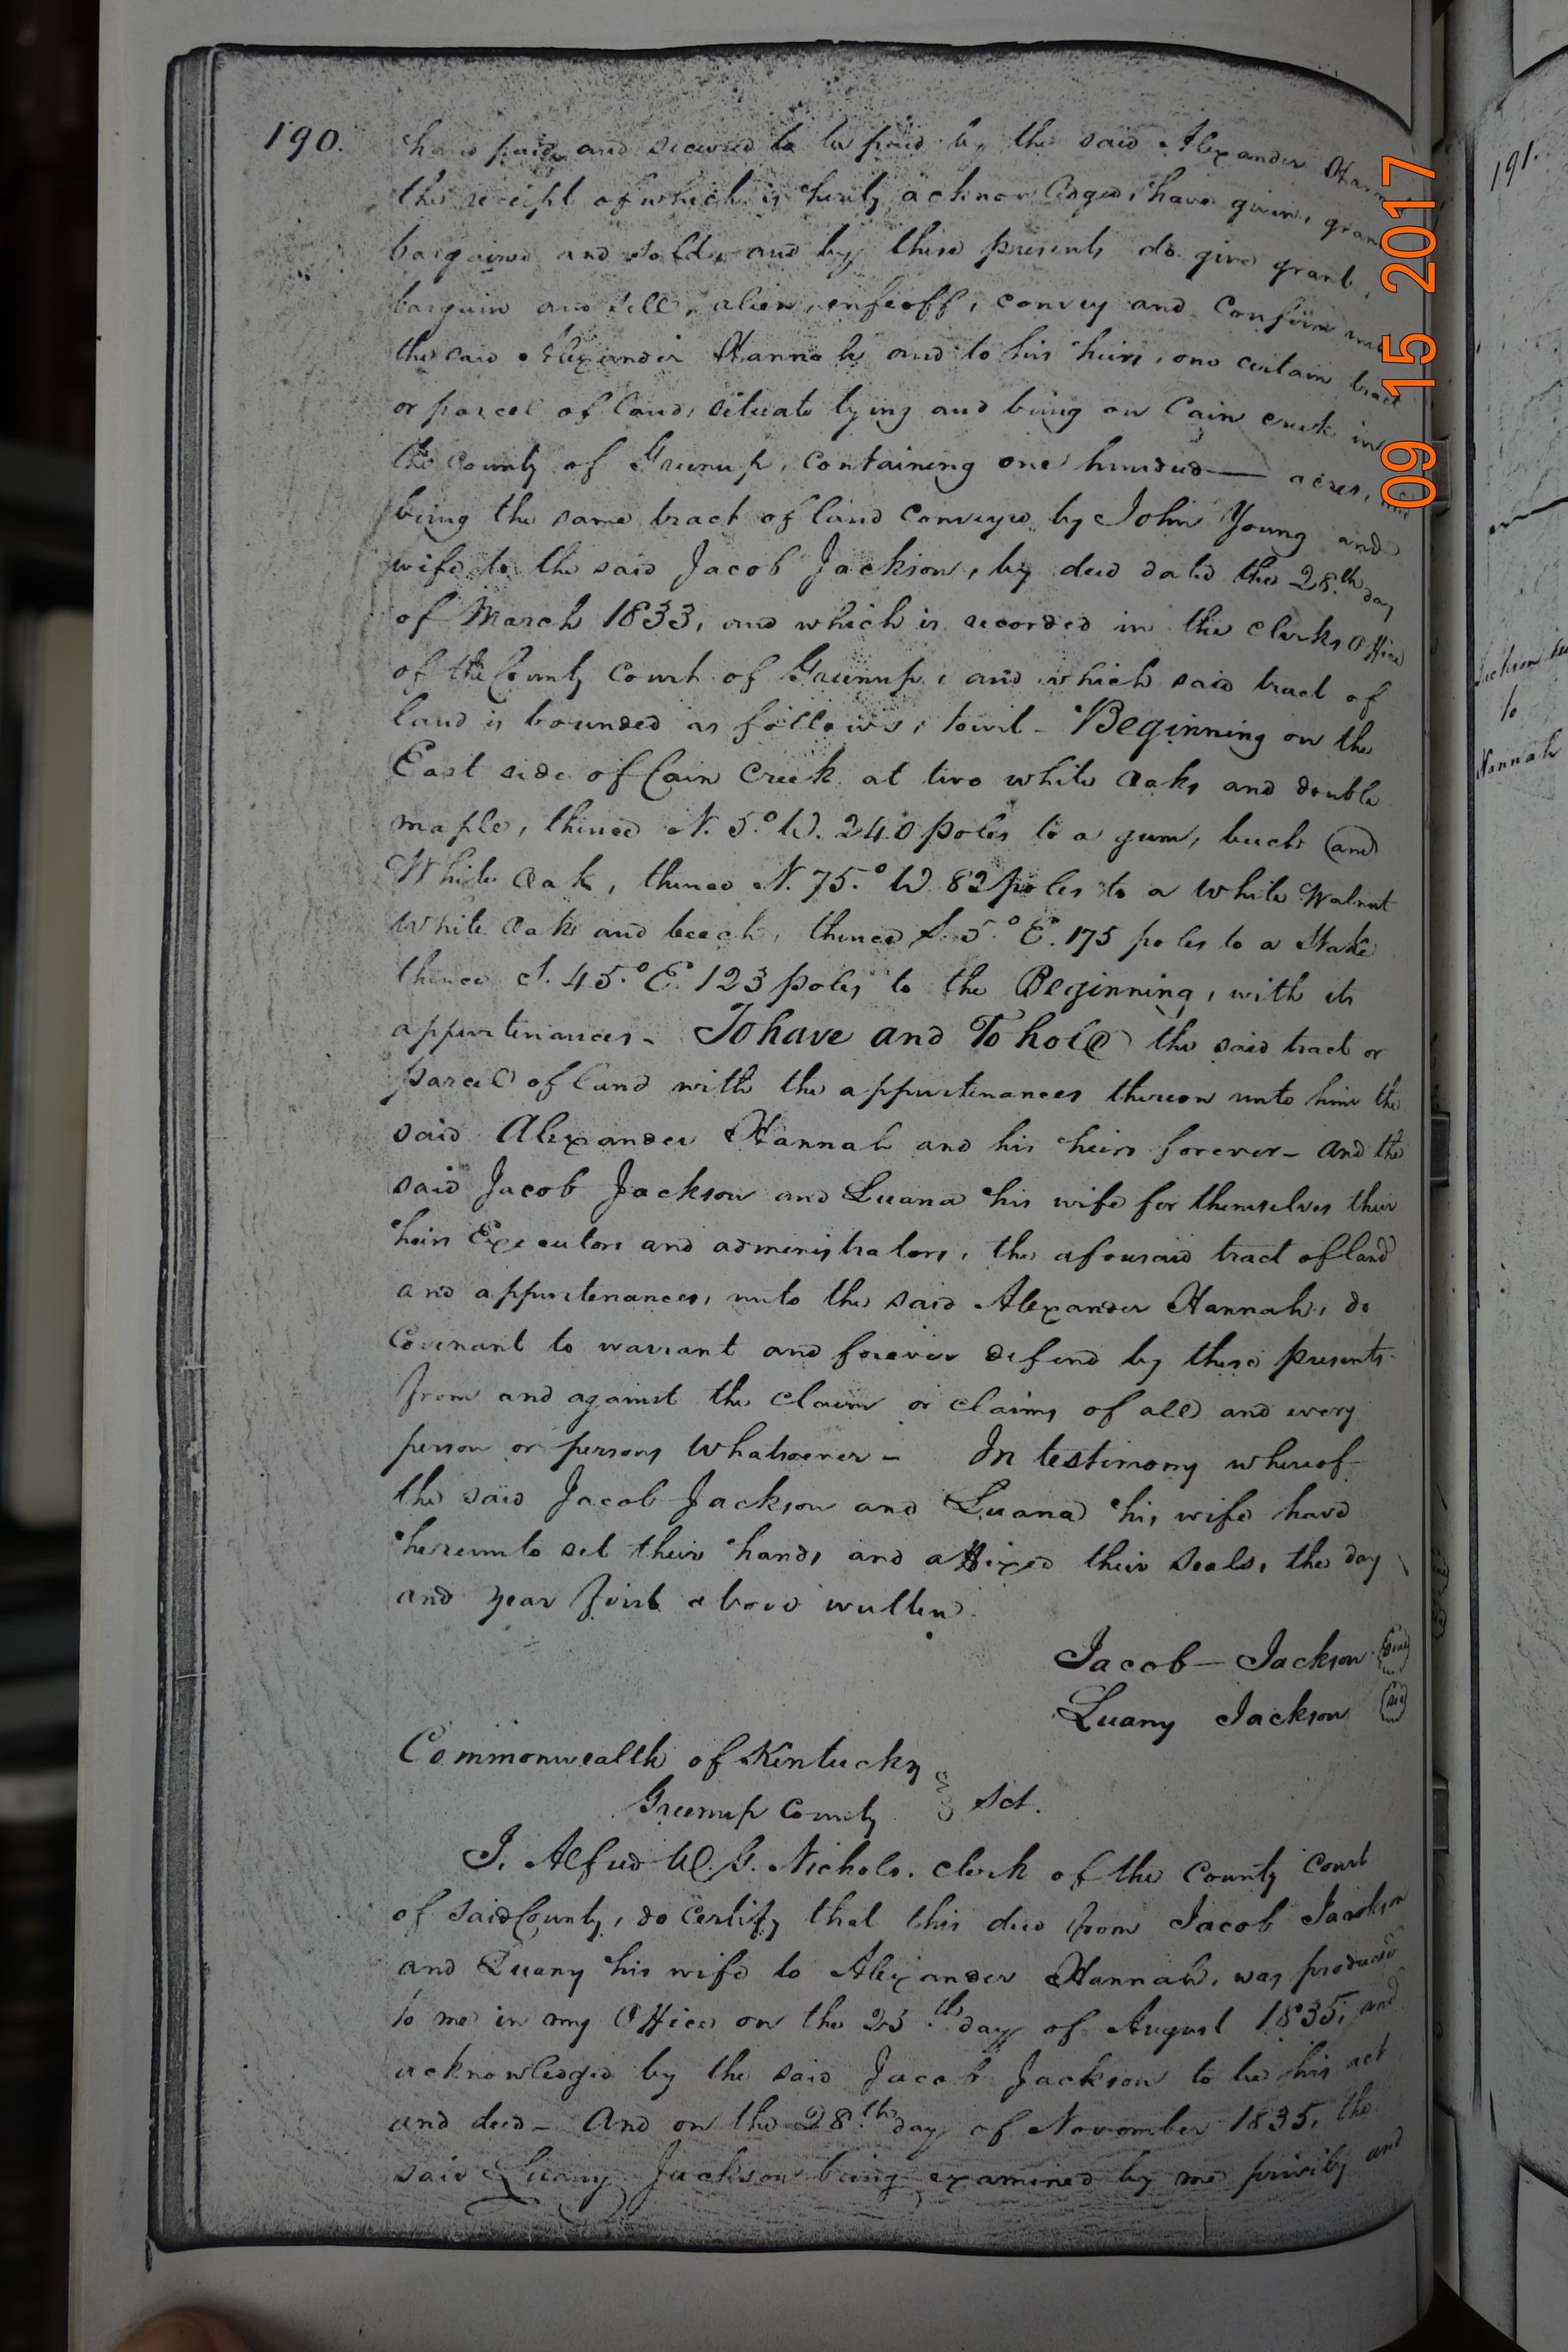 190.
hand paid and secured to be paid by the said Alexander Hann
the receipt of which is hereby acknowledged, have given, gran
bargained and sold, and by these presents do give grant,
bargain and sell, alien, enfeoff, convey and Confirm
the said Alexander Hannah and to his heirs, one certain tract
or parcel of land, situate lying and being on Cain creek in
the County of Greenup, containing one hundred — acres,
being the same tract of land conveyed by John Young and
wife to the said Jacob Jackson, by deed dated the 28.th day
of March 1833, and which is recorded in the clerks office
of the County Court of Greenup, and which said tract of
land is bounded as follows, towit - Beginning on the
East side of Cain Creek at two white oaks and double
maple, thence N. 5.° W. 240 poles to a gum, beech and
White oak, thence N. 75.° W 82 poles to a White Walnut
White oak and beech, thence S. 5.° E. 175 poles to a Stake
thence S. 45.° E. 123 poles to the Beginning, with its
appurtenances - To have and To hold the said tract or
parcel of land with the appurtenances thereon unto him the
said Alexander Hannah and his heirs forever - and the
said Jacob Jackson and Luana his wife for themselves their
heirs Executors and administrators, the aforesaid tract of land
and appurtenances, unto the said Alexander Hannah, do
Covenant to warrant and forever defend by these presents
from and against the claim or claims of all and every
person or persons Whatsoever - In testimony whereof
the said Jacob Jackson and Luana his wife have
hereunto set their hands and affixed their seals, the day
and year first above written.
Jacob — Jackson Seal
Luany Jackson
Commonwealth of Kentucky
Greenup County Sct.
I, Alfred W. G. Nichols. clerk of the County Court
of said County, do certify that this deed from Jacob Jackson
and Luany his wife to Alexander Hannah, was produced
to me in my Office on the 25.th day of August 1835, and
acknowledged by the said Jacob Jackson to be his act
and deed - And on the 28.th day of November 1835, the
said Luany Jackson being examined by me privily and
09 15 2017
191.
Jackson
to
Hannah